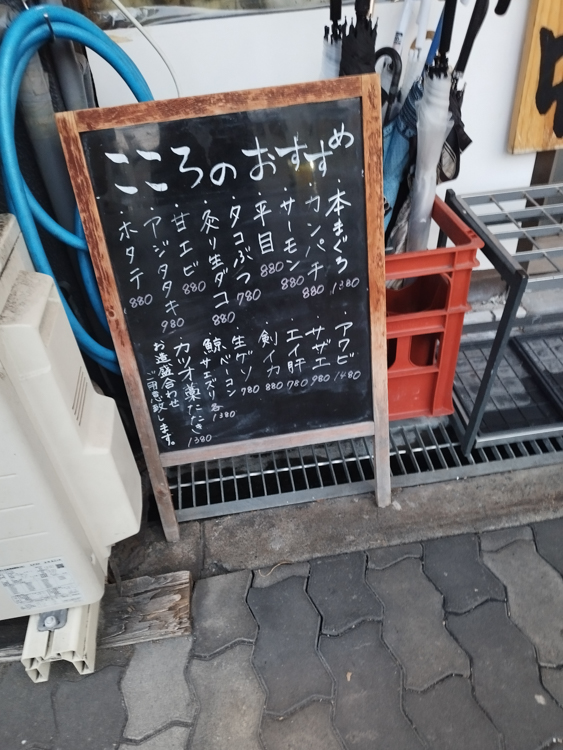 こころのおすすめ
・本まぐろ 1380
・カンパチ 880
・サーモン 880
・平目 880
・タコぶつ 780
・炙り生ダコ 880
・甘エビ 880
・アジタタキ 980
・ホタテ 880
・アワビ 1480
・サザエ 980
・エイ肝 780
・剣イカ 880
・生ゲソ 780
・鯨ベーコン
サエズリ 各1380
・カツオ藁たたき 1380
お造盛合わせ
ご用意致します。